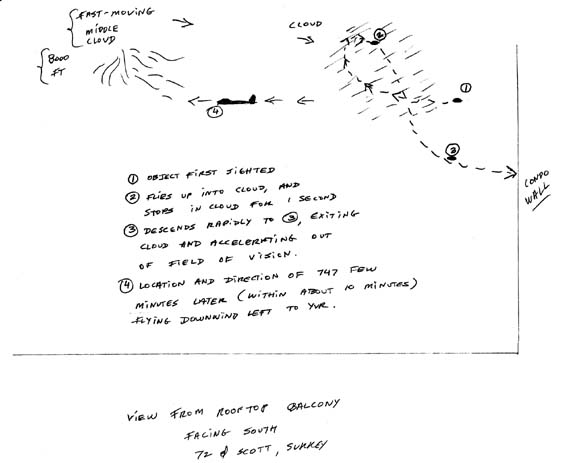 FAST-MOVING
MIDDLE
CLOUD
8000
FT
CLOUD
2
1
4
3
CONDO
WALL
1 OBJECT FIRST SIGHTED
2 FLIES UP INTO CLOUD, AND
STOPS IN CLOUD FOR 1 SECOND
3 DESCENDS RAPIDLY TO 3, EXITING
CLOUD AND ACCELERATING OUT
OF FIELD OF VISION.
4 LOCATION AND DIRECTION OF 747 FEW
MINUTES LATER (WITHIN ABOUT 10 MINUTES)
FLYING DOWNWIND LEFT TO YVR.
VIEW FROM ROOFTOP BALCONY
FACING SOUTH
72 & SCOTT, SURREY